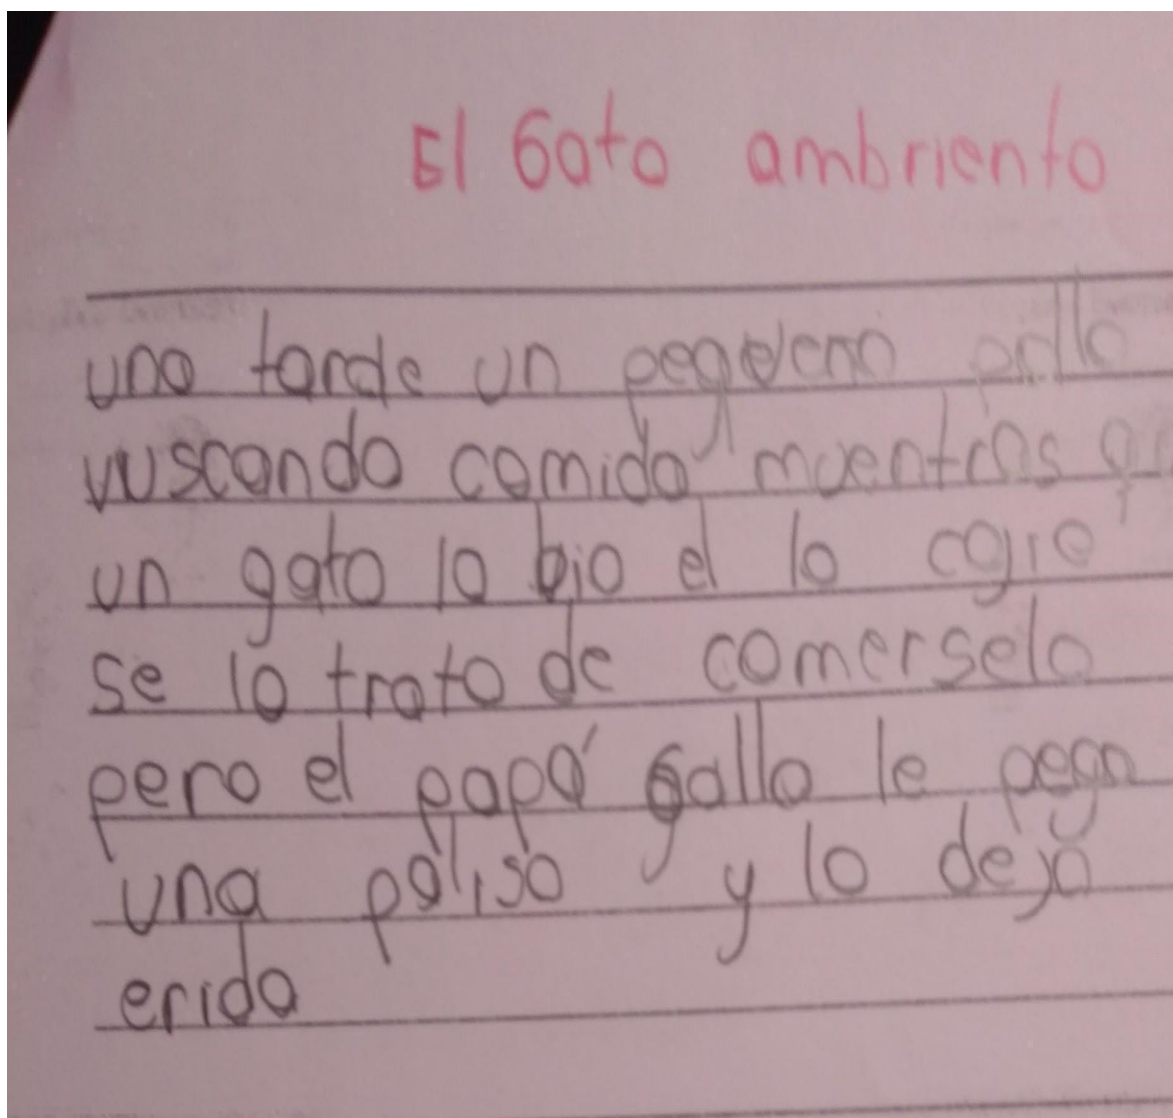 El Gato ambriento
una tarde un pequeno pollo
vuscando comida muentras
un gato lo bio el lo cojio
se lo trato de comerselo
pero el papá gallo le pego
una palisa y lo dejo
erido